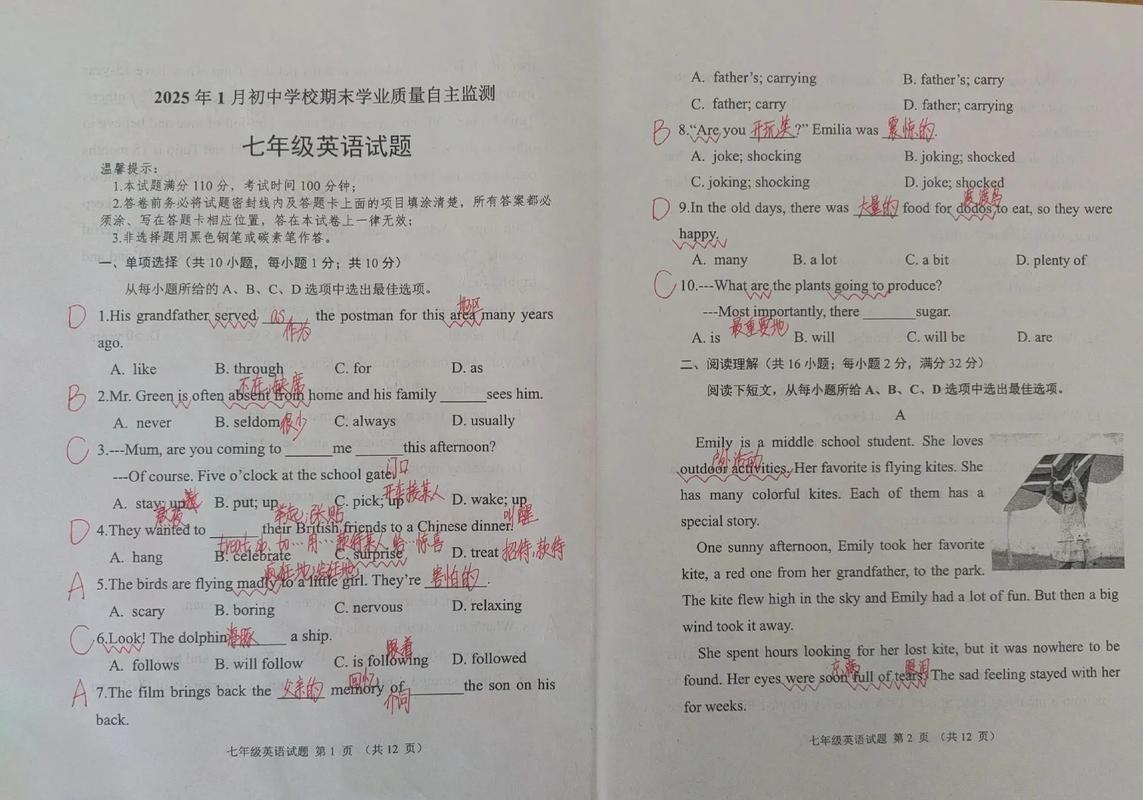 2025 年 1 月初中学校期末学业质量自主监测
七年级英语试题
温馨提示：
1.本试题满分 110 分，考试时间 100 分钟；
2.答卷前务必将试题密封线内及答题卡上面的项目填涂清楚，所有答案都必
须涂、写在答题卡相应位置，答在本试卷上一律无效；
3.非选择题用黑色钢笔或碳素笔作答。
一、单项选择（共 10 小题，每小题 1 分；共 10 分）
从每小题所给的 A、B、C、D 选项中选出最佳选项。
地区
D 1.His grandfather served as the postman for this area many years
作为
ago.
A. like B. through C. for D. as
不在，缺席
B 2.Mr. Green is often absent from home and his family ______ sees him.
A. never B. seldom 很少 C. always D. usually
C 3.---Mum, are you coming to ______ me ______ this afternoon?
---Of course. Five o'clock at the school gate. 门口
开车接某人
A. stay; up B. put; up C. pick; up D. wake; up
熬夜 举起；张贴 叫醒
D 4.They wanted to ______ their British friends to a Chinese dinner.
A. hang B. celebrate C. surprise D. treat 招待，款待
A 5.The birds are flying madly to a little girl. They're 害怕的.
A. scary B. boring C. nervous D. relaxing
C 6.Look! The dolphin 海豚 ______ a ship.
跟着
A. follows B. will follow C. is following D. followed
回忆
A 7.The film brings back the 父亲的 memory of ______ the son on his
back.
介词
七年级英语试题 第 1 页 （共 12 页）
A. father's; carrying B. father's; carry
C. father; carry D. father; carrying
B 8."Are you 开玩笑?" Emilia was 震惊的.
A. joke; shocking B. joking; shocked
C. joking; shocking D. joke; shocked
渡渡鸟
D 9.In the old days, there was 大量的 food for dodos to eat, so they were
happy.
A. many B. a lot C. a bit D. plenty of
C 10.---What are the plants going to produce?
---Most importantly, there ______ sugar.
最重要地
A. is B. will C. will be D. are
二、阅读理解（共 16 小题；每小题 2 分，满分 32 分）
阅读下短文，从每小题所给 A、B、C、D 选项中选出最佳选项。
A
Emily is a middle school student. She loves
户外活动
outdoor activities. Her favorite is flying kites. She
has many colorful kites. Each of them has a
special story.
One sunny afternoon, Emily took her favorite
kite, a red one from her grandfather, to the park.
The kite flew high in the sky and Emily had a lot of fun. But then a big
wind took it away.
She spent hours looking for her lost kite, but it was nowhere to be
充满 眼泪
found. Her eyes were soon full of tears. The sad feeling stayed with her
for weeks.
七年级英语试题 第 2 页 （共 12 页）